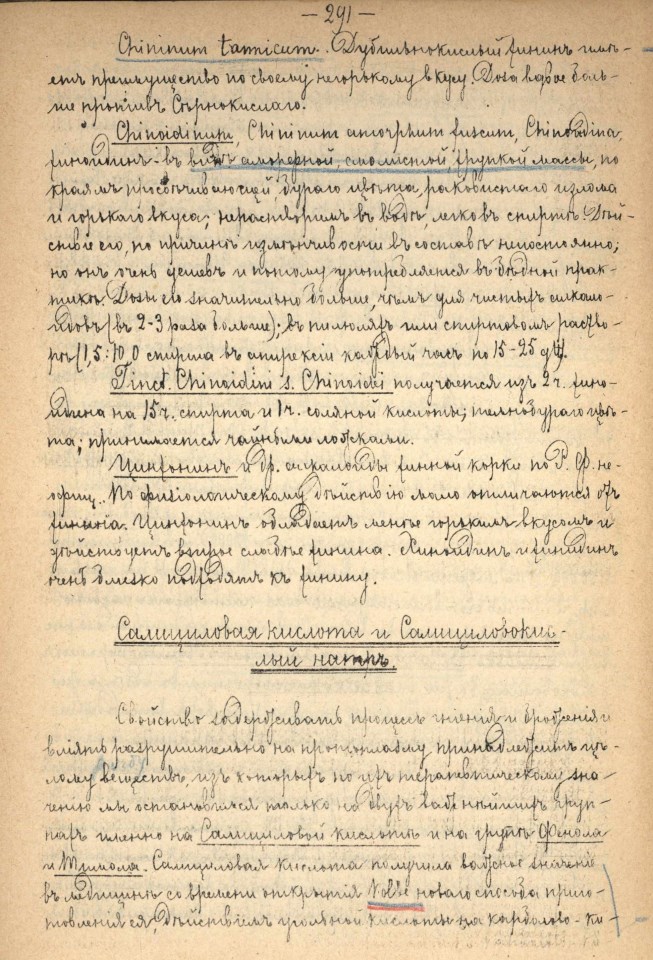 — 291 —
Chininum tannicum. Дубильнокислый хининъ имѣ-
етъ преимущество по своему негорькому вкусу. Доза вдвое боль-
ше противъ Сѣрнокислаго.
Chinoidinum, Chininum amorphum fuscum, Chinoidina,
хиноидинъ: въ видѣ аморфной, смолистой хрупкой массы, по
краямъ просвѣчивающей, бураго цвѣта, раковистаго излома
и горькаго вкуса; нерастворимъ въ водѣ, легко въ спиртѣ. Дѣй-
ствіе его, по причинѣ измѣнчивости въ составѣ непостоянно;
но онъ очень дешевъ и потому употребляется въ бѣдной прак-
тикѣ. Дозы его значительно больше, чѣмъ для чистыхъ алкало-
идовъ (въ 2-3 раза больше); въ пилюляхъ или спиртовомъ раство-
рѣ (1,5:10,0 спирта въ апирексіи каждый часъ по 15-25
Tinct. Chinoidini s. Chinoidei получается изъ 2 ч. хино-
идина на 15 ч. спирта и 1 ч. соляной кислоты; темнобураго цвѣ-
та; принимается чайными ложками.
Цинхонинъ и др. алкалоиды хинной корки по Р. Ф. не-
офиц.. По физіологическому дѣйствію мало отличаются отъ
хинина. Цинхонинъ обладаетъ менѣе горькимъ вкусомъ и
дѣйствуетъ втрое слабѣе хинина. Хиноидинъ и хинидинъ
очень близко подходятъ къ хинину.
Салициловая кислота и Салициловокис-
лый натръ.
Свойство задерживать процессъ гніенія и броженія и
вліять разрушительно на протоплазму принадлежитъ цѣ-
лому веществъ, изъ которыхъ по ихъ терапевтическому зна-
ченію мы остановимся только на двухъ важнѣйшихъ груп-
пахъ именно на Салициловой кислотѣ и на группѣ Фенола
и Тимола. Салициловая кислота получила важное значеніе
въ медицинѣ со времени открытія Kolbe новаго способа приго-
товленія ея дѣйствіемъ угольной кислоты на карболово-ки-